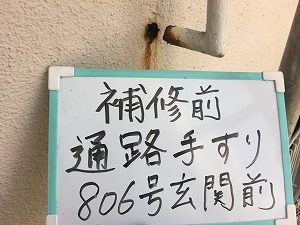 補修前
通路手すり
806号玄関前